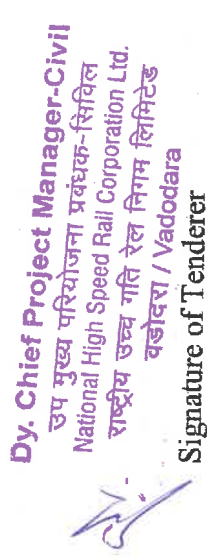 Dy. Chief Project Manager-Civil
उप मुख्य परियोजना प्रबंधक-सिविल
National High Speed Rail Corporation Ltd.
राष्ट्रीय उच्च गति रेल निगम लिमिटेड
वडोदरा / Vadodara
Signature of Tenderer